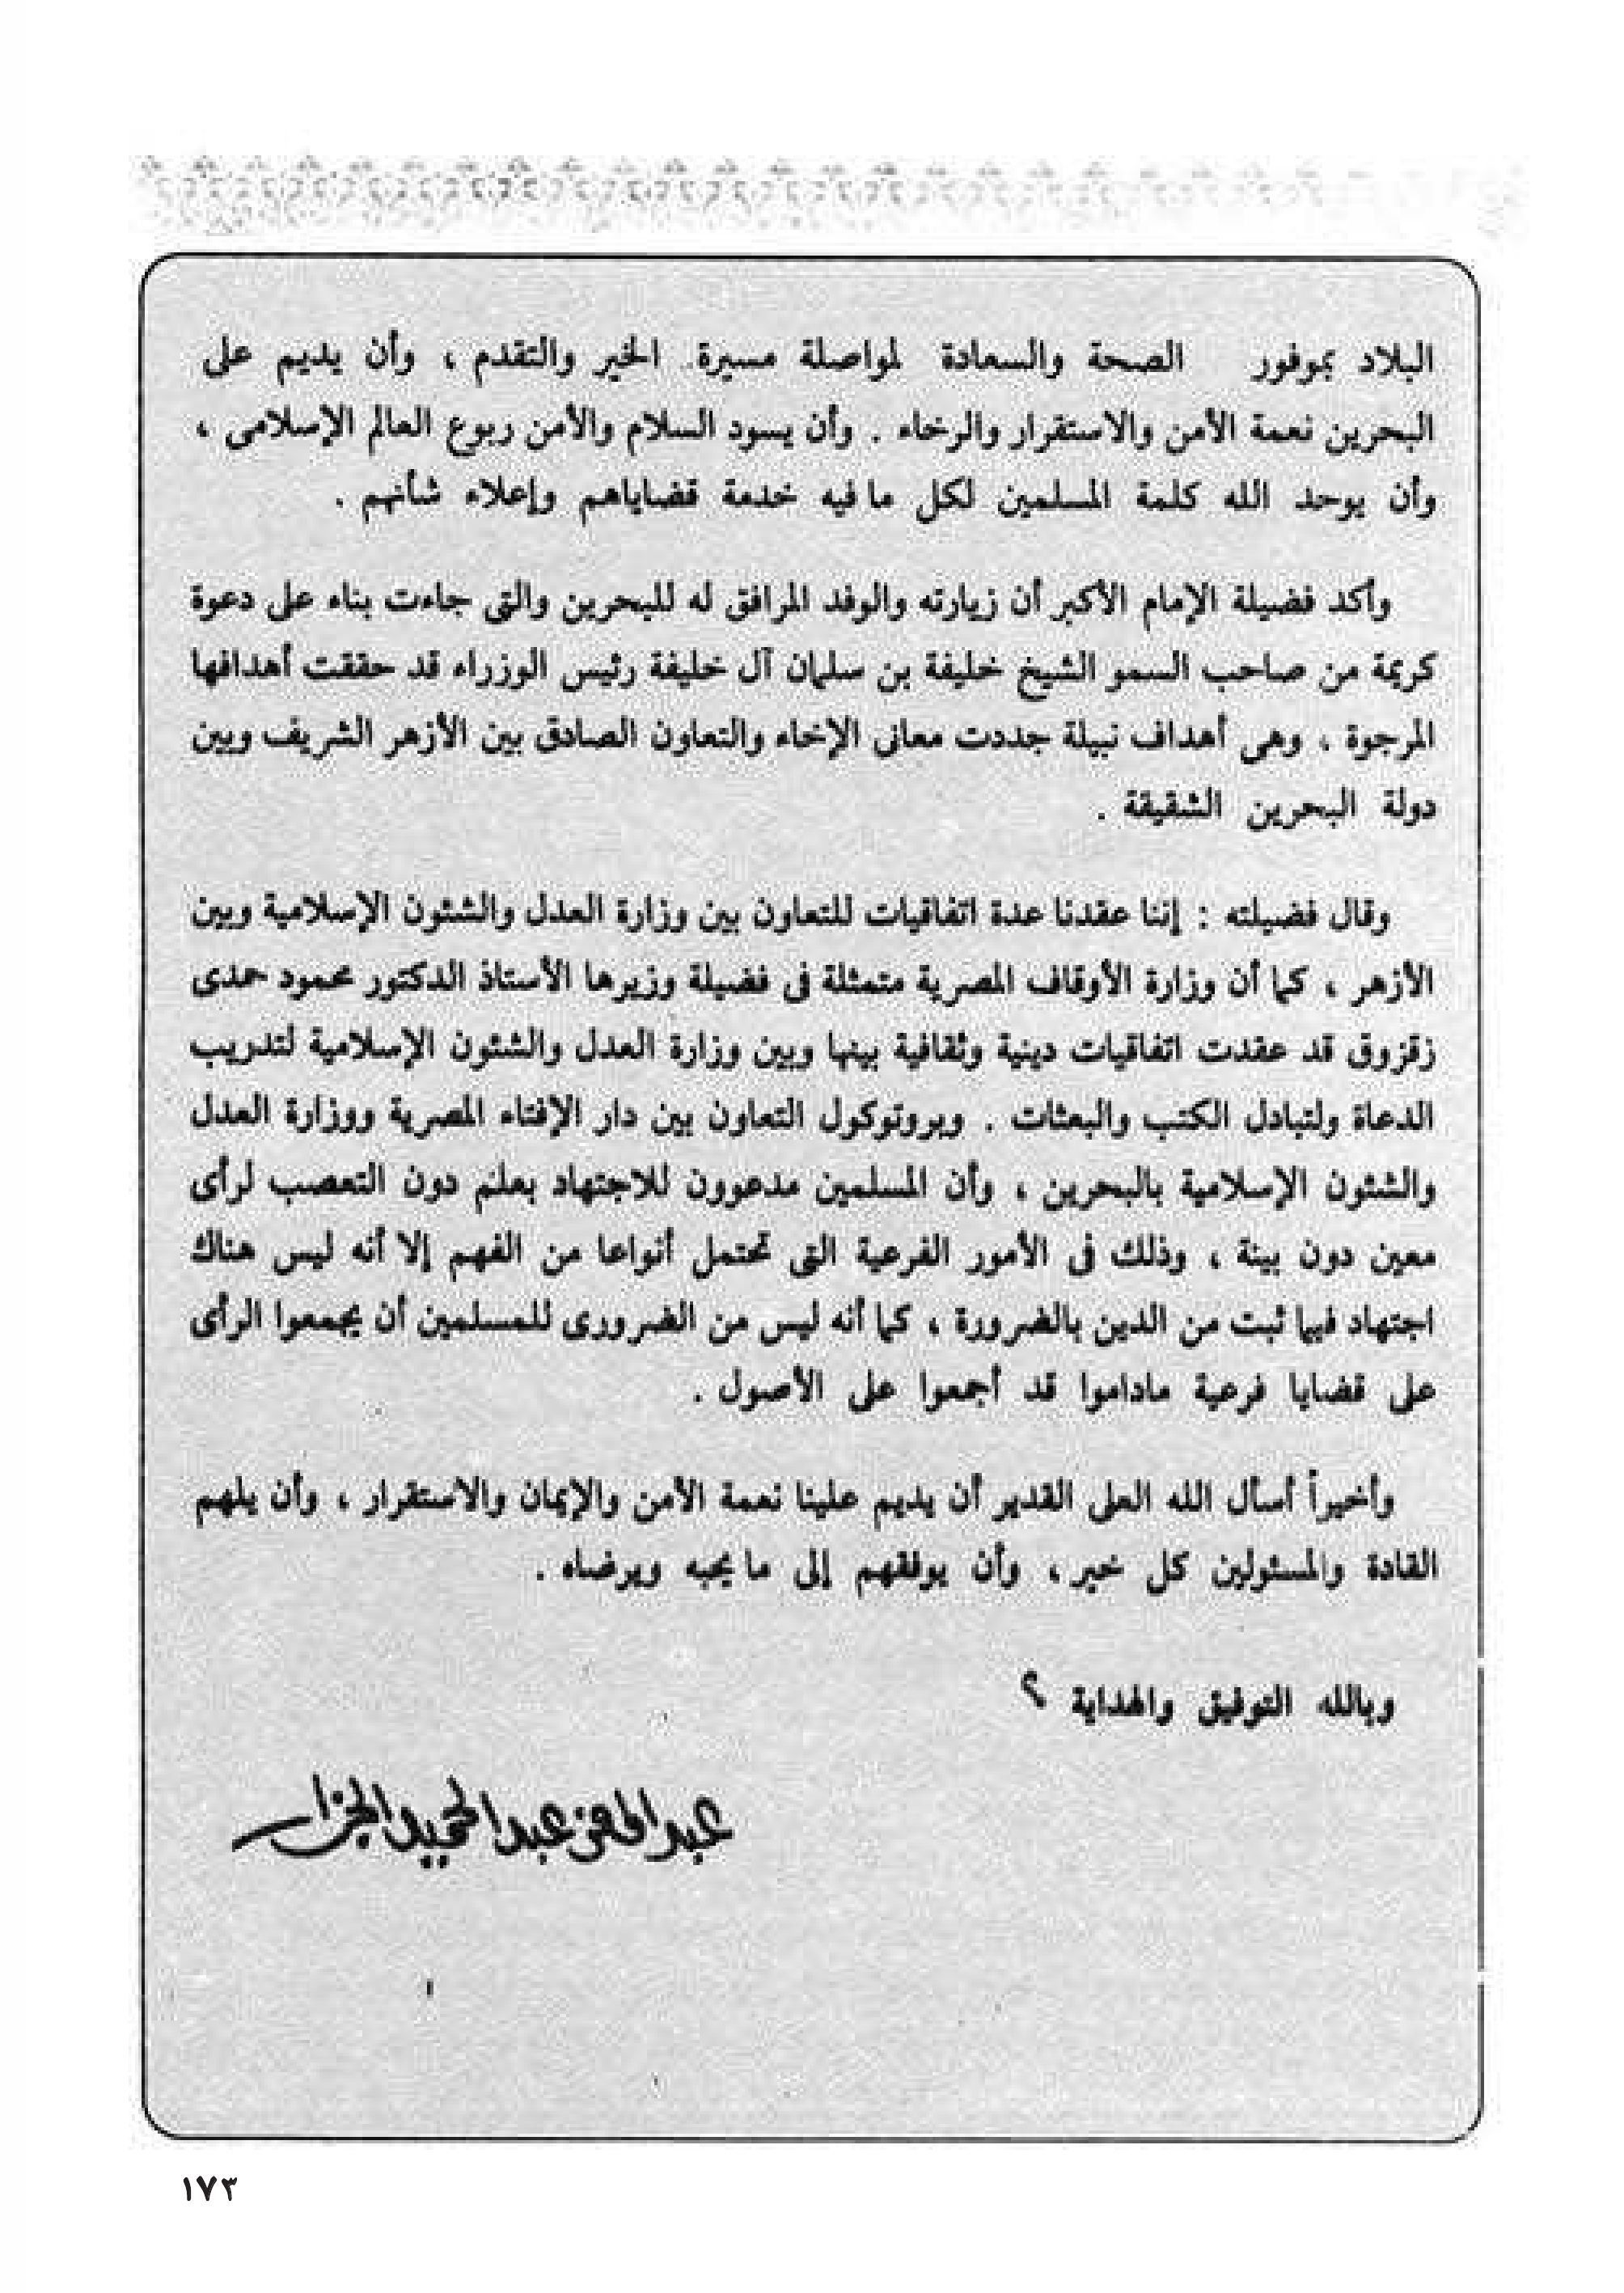 البلاد بموفور الصحة والسعادة لمواصلة مسيرة الخير والتقدم ، وأن يديم على
البحرين نعمة الأمن والاستقرار والرخاء . وأن يسود السلام والأمن ربوع العالم الإسلامى ،
وأن يوحد الله كلمة المسلمين لكل ما فيه خدمة قضاياهم وإعلاء شأنهم .
وأكد فضيلة الإمام الأكبر أن زيارته والوفد المرافق له للبحرين والتى جاءت بناء على دعوة
كريمة من صاحب السمو الشيخ خليفة بن سلمان آل خليفة رئيس الوزراء قد حققت أهدافها
المرجوة ، وهى أهداف نبيلة جددت معانى الإخاء والتعاون الصادق بين الأزهر الشريف وبين
دولة البحرين الشقيقة .
وقال فضيلته : إننا عقدنا عدة اتفاقيات للتعاون بين وزارة العدل والشئون الإسلامية وبين
الأزهر ، كما أن وزارة الأوقاف المصرية متمثلة فى فضيلة وزيرها الأستاذ الدكتور محمود حمدى
زقزوق قد عقدت اتفاقيات دينية وثقافية بينها وبين وزارة العدل والشئون الإسلامية لتدريب
الدعاة ولتبادل الكتب والبعثات . وبروتوكول التعاون بين دار الإفتاء المصرية ووزارة العدل
والشئون الإسلامية بالبحرين ، وأن المسلمين مدعوون للاجتهاد بعلم دون التعصب لرأى
معين دون بينة ، وذلك فى الأمور الفرعية التى تحتمل أنواعا من الفهم إلا أنه ليس هناك
اجتهاد فيما ثبت من الدين بالضرورة ، كما أنه ليس من الضرورى للمسلمين أن يجمعوا الرأى
على قضايا فرعية ماداموا قد أجمعوا على الأصول .
وأخيراً أسأل الله العلى القدير أن يديم علينا نعمة الأمن والإيمان والاستقرار ، وأن يلهم
القادة والمسئولين كل خير ، وأن يوفقهم إلى ما يحبه ويرضاه .
وبالله التوفيق والهداية ؟
عبد المعز عبد الحميد الجزار
١٧٣